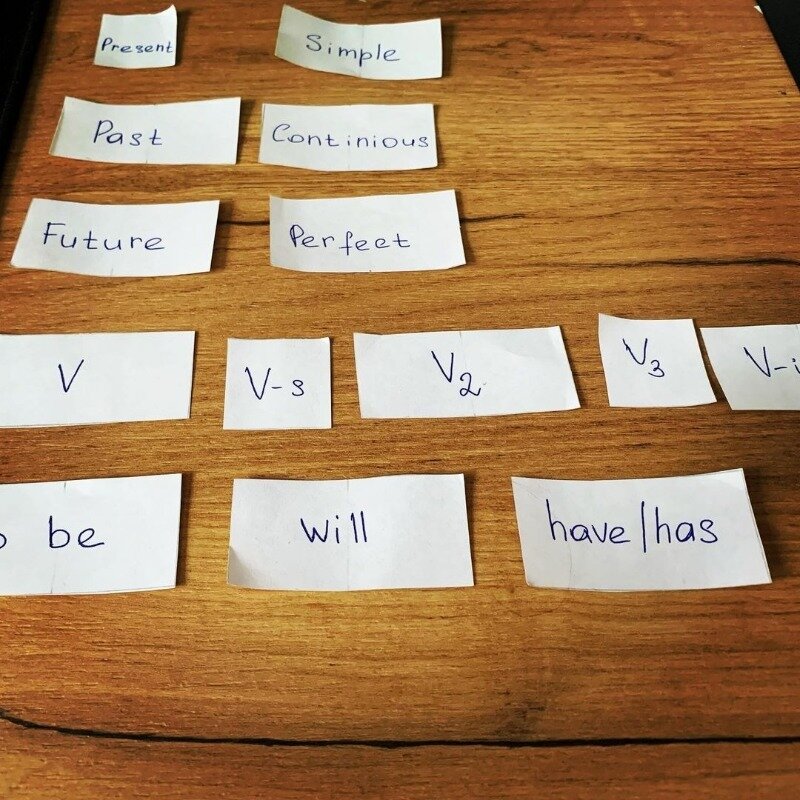 Present Simple
Past Continious
Future Perfect
V V-s V2 V3 V-i
o be will have/has